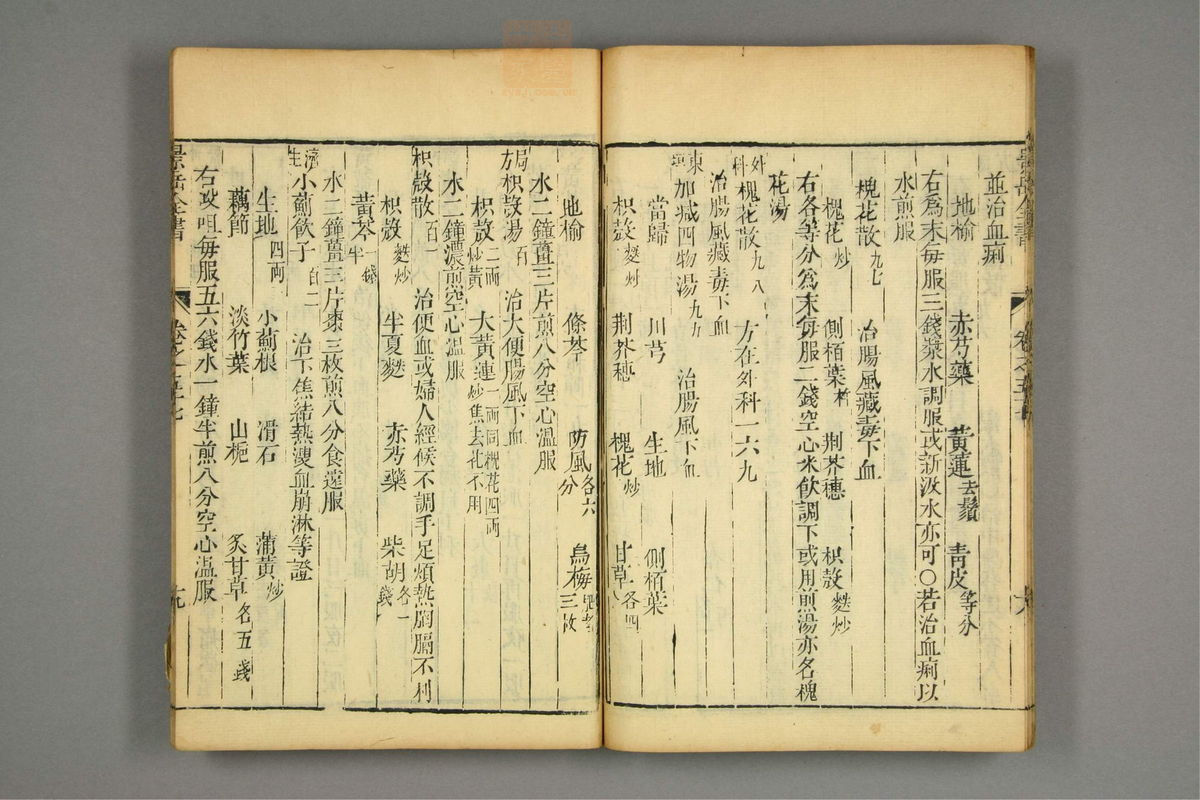 並治血痢
地榆 赤芍藥 黃蓮去鬚 青皮等分
右爲末每服三錢漿水調服或新汲水亦可○若治血痢以
水煎服
槐花散九七 治腸風藏毒下血
槐花炒 側栢葉 荆芥穗 枳殼麩炒
右各等分爲末每服二錢空心米飲調下或用煎湯亦名槐
花湯
外科槐花散九八 方在外科一六九
治腸風藏毒下血
東垣加減四物湯九九 治腸風下血
當歸 川芎 生地 側栢葉
枳殼麩炒 荆芥穗 槐花炒 甘草各四
地榆 條芩 防風各六分 烏梅肥者三枚
水二鐘薑三片煎八分空心溫服
局方枳殼湯百 治大便腸風下血
枳殼二兩炒黃 大黃連一兩同槐花四兩炒焦去花不用
水二鐘濃煎空心溫服
枳殼散百一 治便血或婦人經候不調手足煩熱胸膈不利
枳殼麩炒 半夏麩 赤芍藥 柴胡各一錢
黃芩一錢半
水二鐘薑三片棗三枚煎八分食遠服
濟生小薊飲子百二 治下焦結熱溲血崩淋等證
生地四兩 小薊根 滑石 蒲黃炒
藕節 淡竹葉 山梔 炙甘草各五錢
右㕮咀每服五六錢水一鐘半煎八分空心溫服
景岳全書 卷之五十七 九